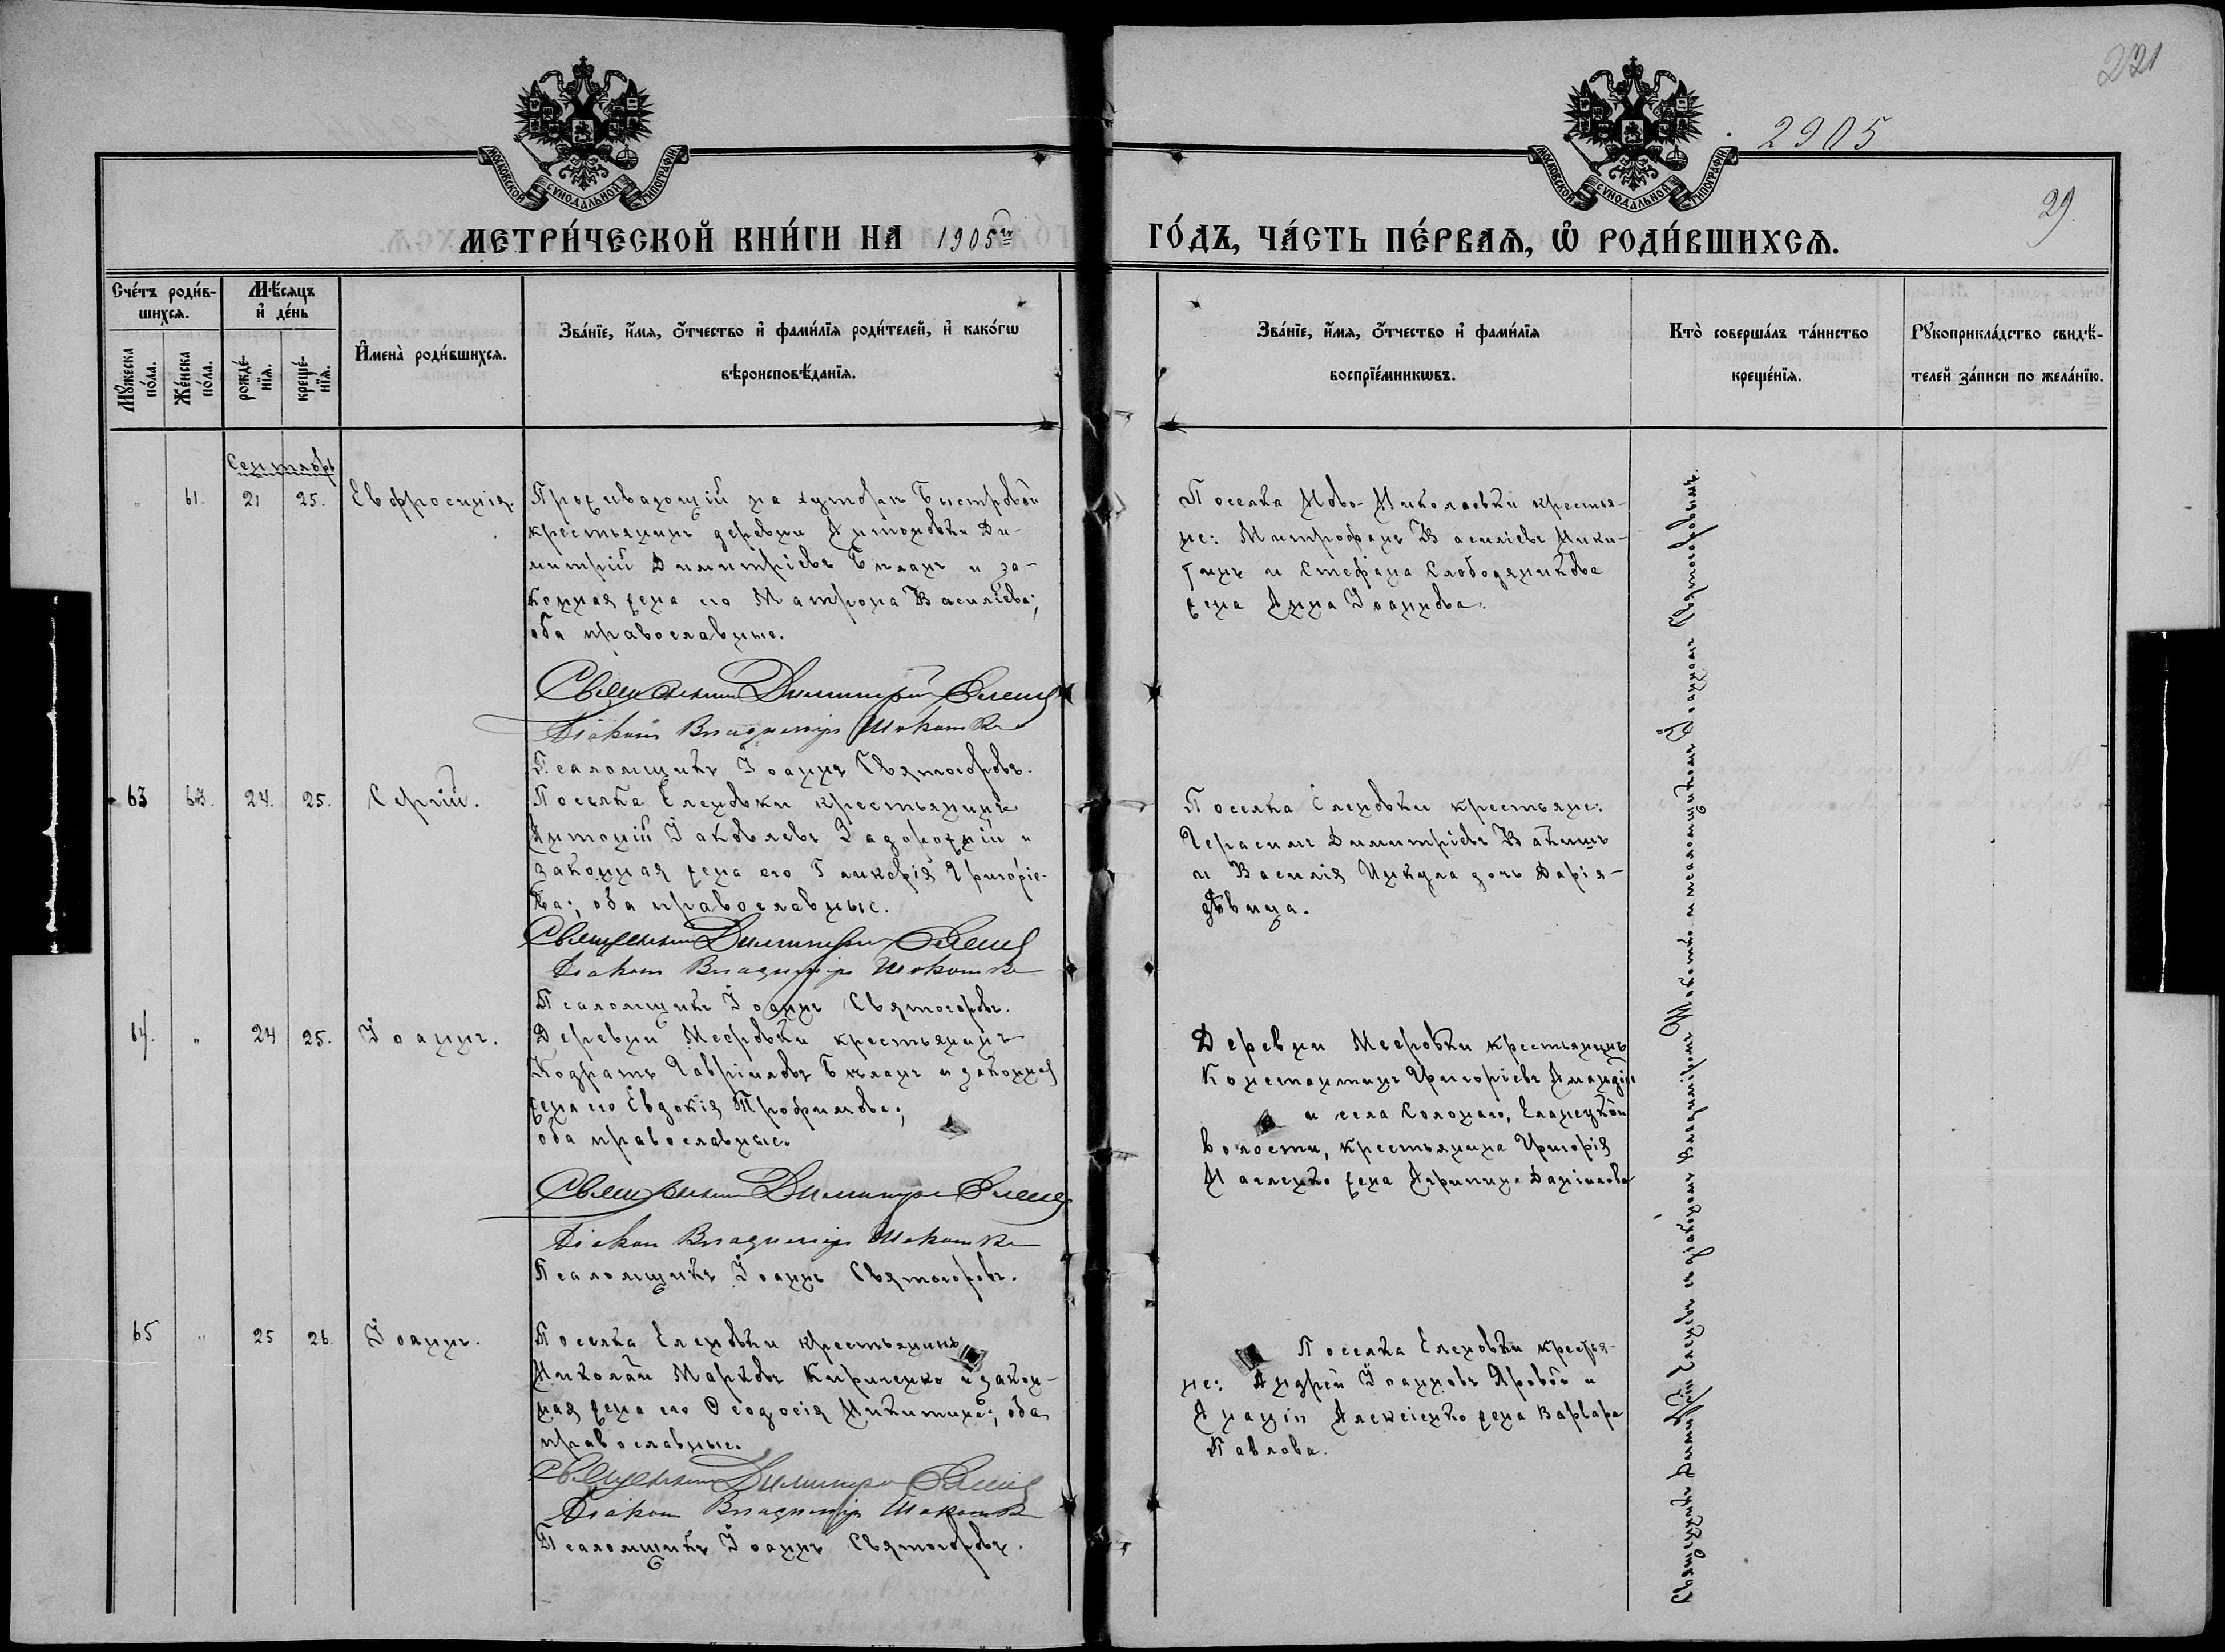 221
2905
29.
МОСКОВСКОЙ СУНОДАЛЬНОЙ ТИПОГРАФІИ.
МОСКОВСКОЙ СУНОДАЛЬНОЙ ТИПОГРАФІИ.
МЕТРИ́ЧЕСКОЙ КНИ́ГИ НА 1905й
ГО́ДЪ, ЧА́СТЬ ПЕ́РВАѦ, Ѡ РОДИ́ВШИХСѦ.
Сче́тъ роди́в-
шихсѧ.
Мꙋ́жеска по́ла.
Же́нска по́ла.
Мѣ́сѧцъ
и҆ де́нь
рожде́-
нїѧ.
креще́-
нїѧ.
И҆мена̀ роди́вшихсѧ.
Зва́нїе, и҆́мѧ, ѻ҆́тчество и҆ фами́лїѧ роди́телей, и҆ како́гѡ
вѣроисповѣ́данїѧ.
Зва́нїе, и҆́мѧ, ѻ҆́тчество и҆ фами́лїѧ
воспрїе́мникѡвъ.
Кто̀ соверша́лъ та́инство
креще́нїѧ.
Рꙋкоприкла́дство свидѣ́-
телей за́писи по жела́нїю.
Сентябрь
" 61. 21 25. Евфросинія.
Проживающій на хуторѣ Быстровой
крестьянинъ деревни Антоновки Ди-
митрій Димитріевъ Бѣланъ и за-
конная жена его Матрона Василіева;
оба православные.
Священникъ Димитрій Еленевъ
Діаконъ Владиміръ Шокотько
Псаломщикъ Іоаннъ Святогоровъ.
Поселка Ново-Николаевки крестья-
не: Митрофанъ Василіевъ Ники-
тинъ и Стефана Слободяникова
жена Анна Іоаннова.
63 24. 25. Сергій.
Поселка Еленовки крестьянинъ
Антоній Іаковлевъ Задорожній и
законная жена его Гликерія Григоріе-
ва; оба православные.
Священникъ Димитрій Еленевъ
Діаконъ Владиміръ Шокотько
Псаломщикъ Іоаннъ Святогоровъ.
Поселка Еленовки крестьяне:
Герасимъ Димитріевъ
и Василія дочь Дарія-
дѣвица.
64. " 24 25. Іоаннъ.
Деревни Мееровки крестьянинъ
Кодратъ Гавріиловъ Бѣланъ и законная
жена его Евдокія Трофимова;
оба православные.
Священникъ Димитрій Еленевъ
Діаконъ Владиміръ Шокотько
Псаломщикъ Іоаннъ Святогоровъ.
Деревни Мееровки крестьянинъ
Константинъ Григоріевъ
и села Солонаго, Еланецкой
волости, крестьянина Григорія
жена Агрипина Даніилова
65 " 25 26. Іоаннъ.
Поселка Еленовки крестьянинъ
Николай Марковъ Кириченко и закон-
ная жена его Ѳеодосія Никитина; оба
православные.
Священникъ Димитрій Еленевъ
Діаконъ Владиміръ Шокотько
Псаломщикъ Іоаннъ Святогоровъ.
Поселка Еленовки крестья-
не: Андрей Іоанновъ Яровой и
Ананіи Алексіенко жена Варвара
Павлова.
Священникъ Димитрій Еленевъ съ діакономъ Владиміромъ Шокотько и псаломщикомъ Іоанномъ Святогоровымъ.